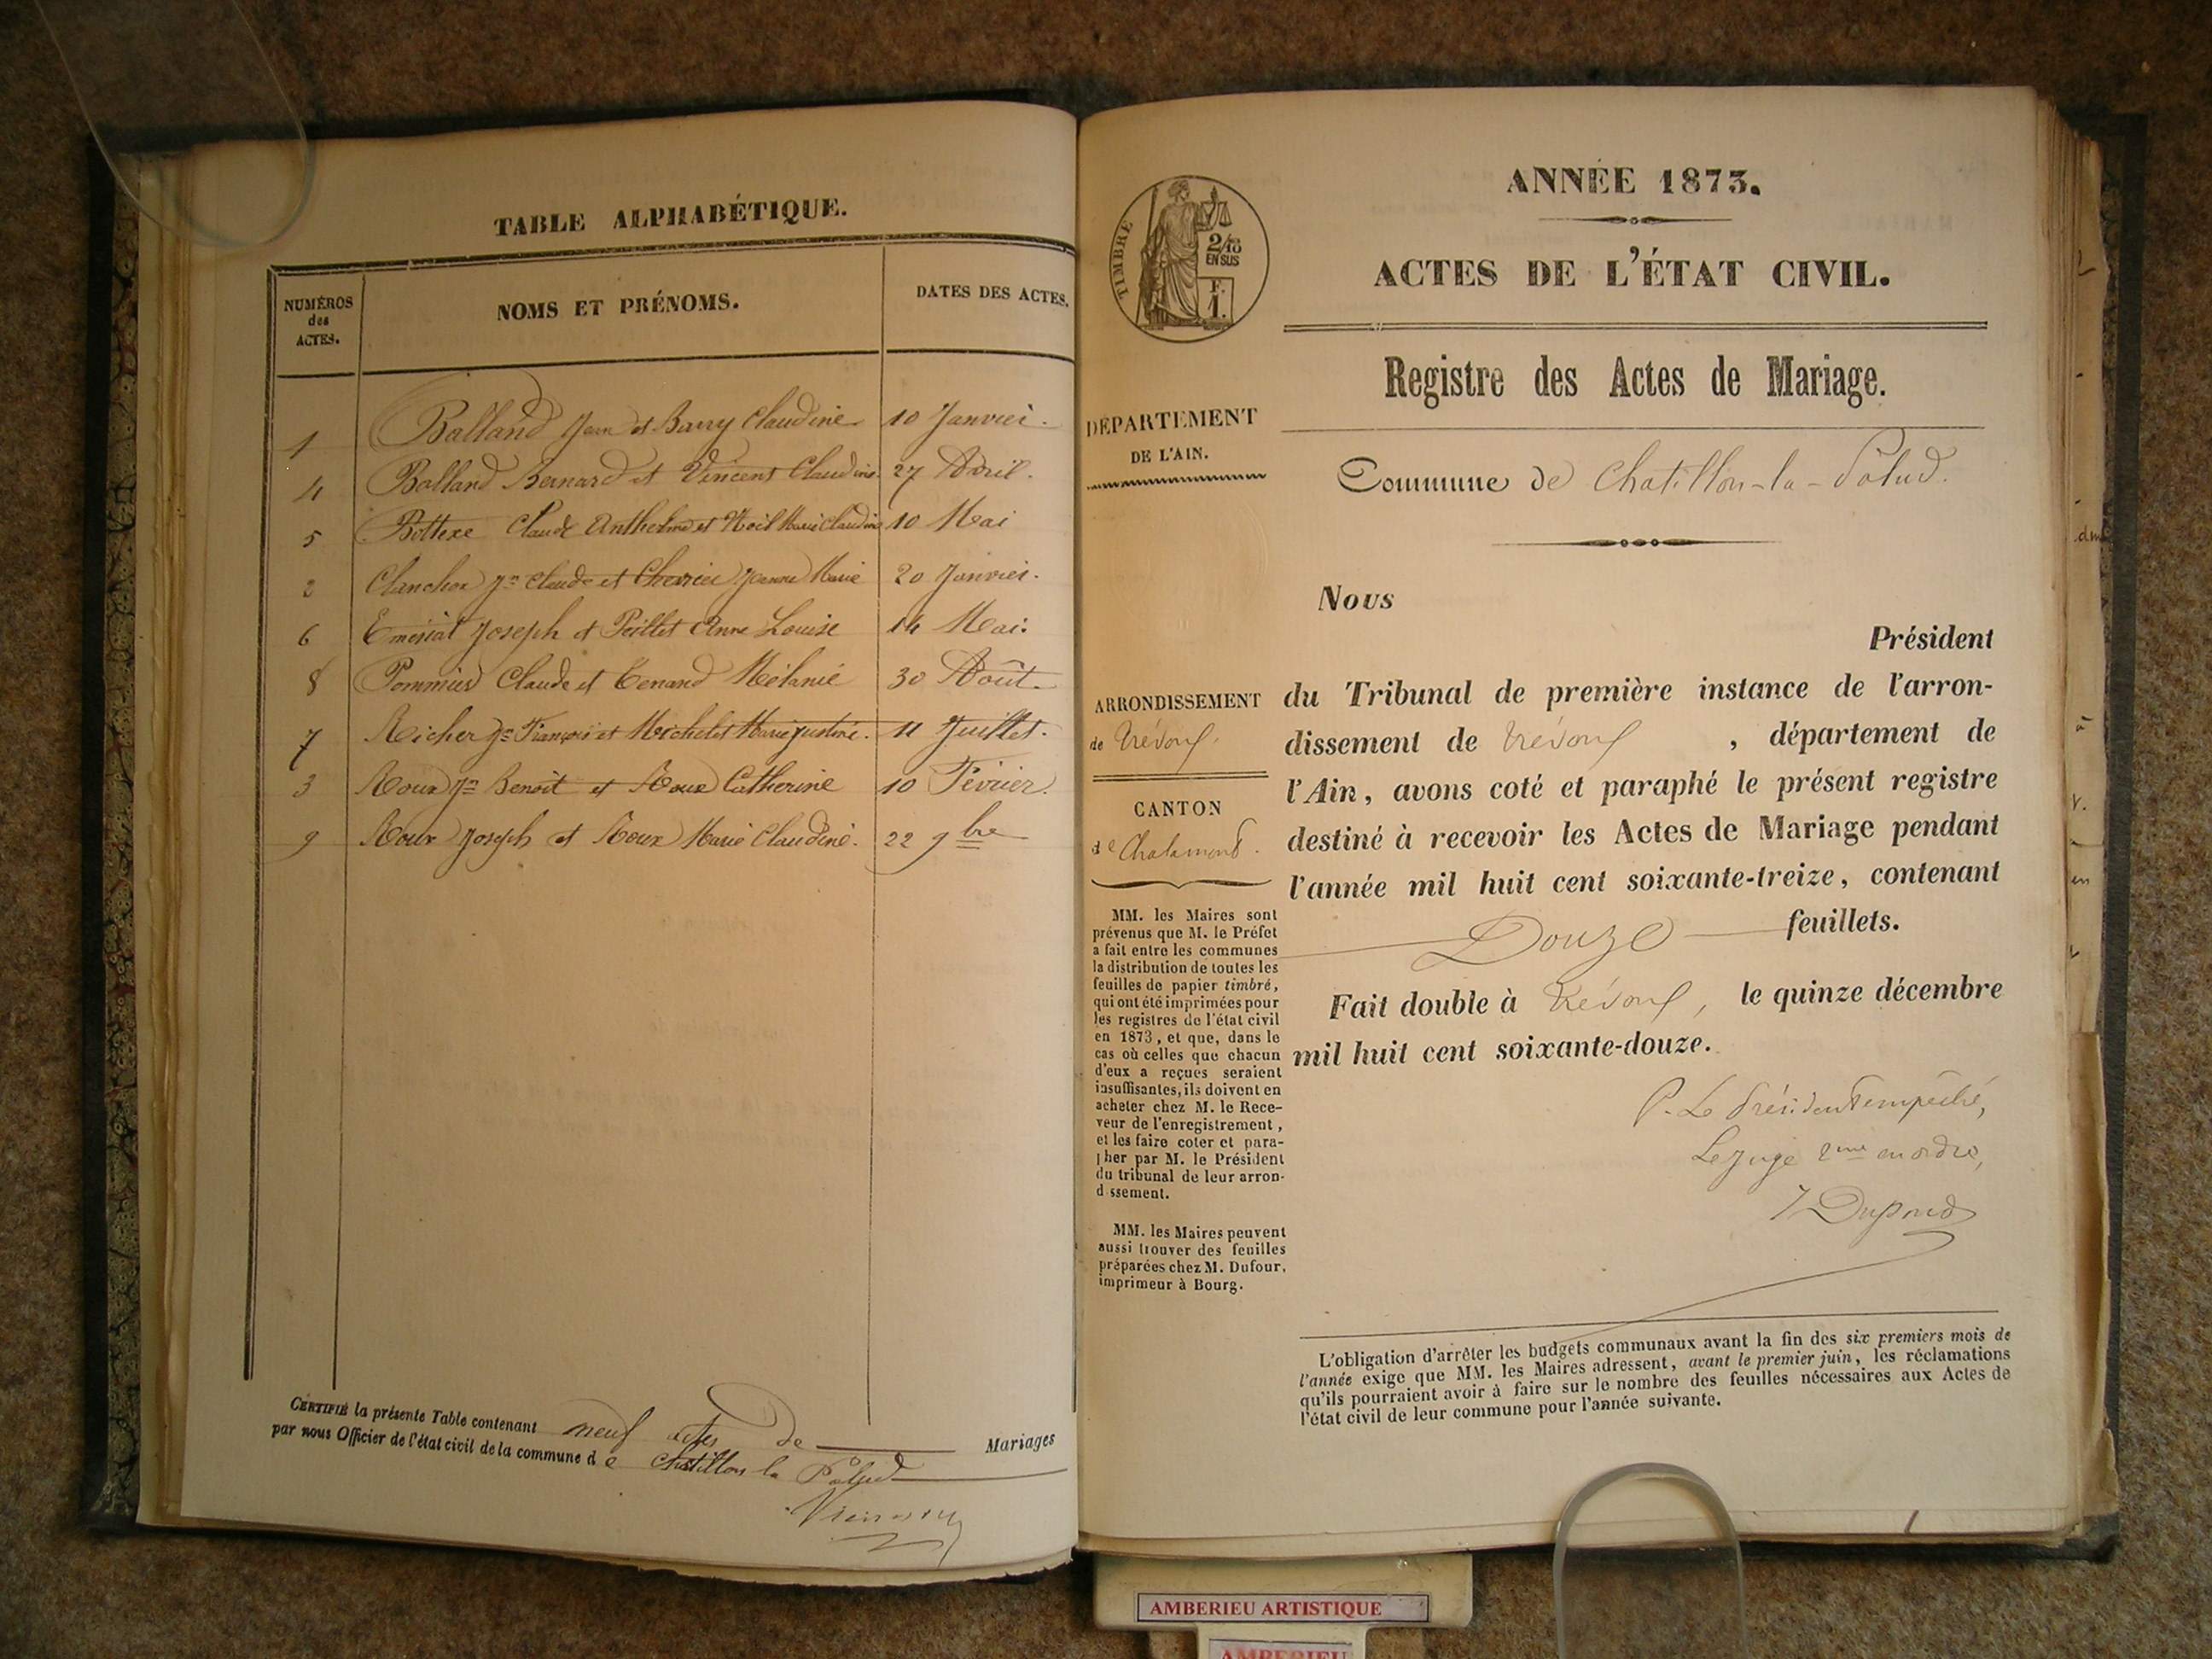 TABLE ALPHABÉTIQUE.
NUMÉROS
des
ACTES.
NOMS ET PRÉNOMS.
DATES DES ACTES.
1 Balland Jean et Barry Claudine 10 Janvier.
4 Balland Bernard et Vincent Claudine 27 Avril.
5 Bottexe Claude Anthelme et Noël Marie Claudine 10 Mai
2 Clanchon Jn Claude et Chevrier Jeanne Marie 20 Janvier.
6 Emériat Joseph et Peillet Anne Louise 14 Mai.
8 Pommier Claude et Tenand Mélanie 30 Août.
7 Richer Jn François et Michelet Marie Justine. 11 Juillet.
3 Roux Jn Benoit et Roux Catherine 10 Février.
9 Roux Joseph et Roux Marie Claudine. 22 9bre
CERTIFIÉ la présente Table contenant neuf actes de Mariages
par nous Officier de l'état civil de la commune de Chatillon la Palud
ANNÉE 1873.
ACTES DE L'ÉTAT CIVIL.
TIMBRE
2/10
EN SUS
F.
1.
Registre des Actes de Mariage.
DÉPARTEMENT
DE L'AIN.
Commune de Chatillon-la-Palud.
Nous
Président
ARRONDISSEMENT
de Trévoux.
CANTON
de Chalamont.
du Tribunal de première instance de l'arron-
dissement de Trévoux, département de
l'Ain, avons coté et paraphé le présent registre
destiné à recevoir les Actes de Mariage pendant
l'année mil huit cent soixante-treize, contenant
Douze feuillets.
Fait double à Trévoux, le quinze décembre
mil huit cent soixante-douze.
P. Le Président empêché,
Le Juge 2me en ordre,
J Dupond
MM. les Maires sont
prévenus que M. le Préfet
a fait entre les communes
la distribution de toutes les
feuilles de papier timbré,
qui ont été imprimées pour
les registres de l'état civil
en 1873, et que, dans le
cas où celles que chacun
d'eux a reçues seraient
insuffisantes, ils doivent en
acheter chez M. le Rece-
veur de l'enregistrement,
et les faire coter et para-
pher par M. le Président
du tribunal de leur arron-
d ssement.
MM. les Maires peuvent
aussi trouver des feuilles
préparées chez M. Dufour,
imprimeur à Bourg.
L'obligation d'arrêter les budgets communaux avant la fin des six premiers mois de
l'année exige que MM. les Maires adressent, avant le premier juin, les réclamations
qu'ils pourraient avoir à faire sur le nombre des feuilles nécessaires aux Actes de
l'état civil de leur commune pour l'année suivante.
AMBERIEU ARTISTIQUE
AMBERIEU